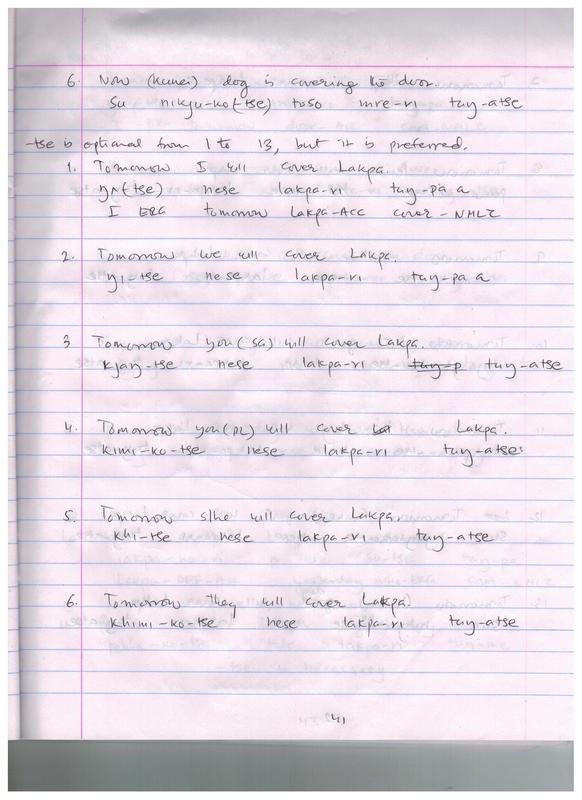 6. Now (kunei) dog is covering the door.
Su nikyu-ko(-tse) toso mre-ri tuy-atse
-tse is optional from 1 to 13, but it is preferred.
1. Tomorrow I will cover Lakpa.
ŋʌ(tse) nese lakpa-ri tuy-pa a
I ERG tomorrow Lakpa-ACC cover-NMLZ
2. Tomorrow we will cover Lakpa.
ŋi-tse nese lakpa-ri tuy-pa a
3 Tomorrow you (SG) will cover Lakpa.
kjaŋ-tse nese lakpa-ri tuy-p tuy-atse
4. Tomorrow you (PL) will cover Lakpa.
kimi-ko-tse nese lakpa-ri tuy-atse
5. Tomorrow s/he will cover Lakpa.
khi-tse nese lakpa-ri tuy-atse
6. Tomorrow they will cover Lakpa.
khimi-ko-tse nese lakpa-ri tuy-atse
41